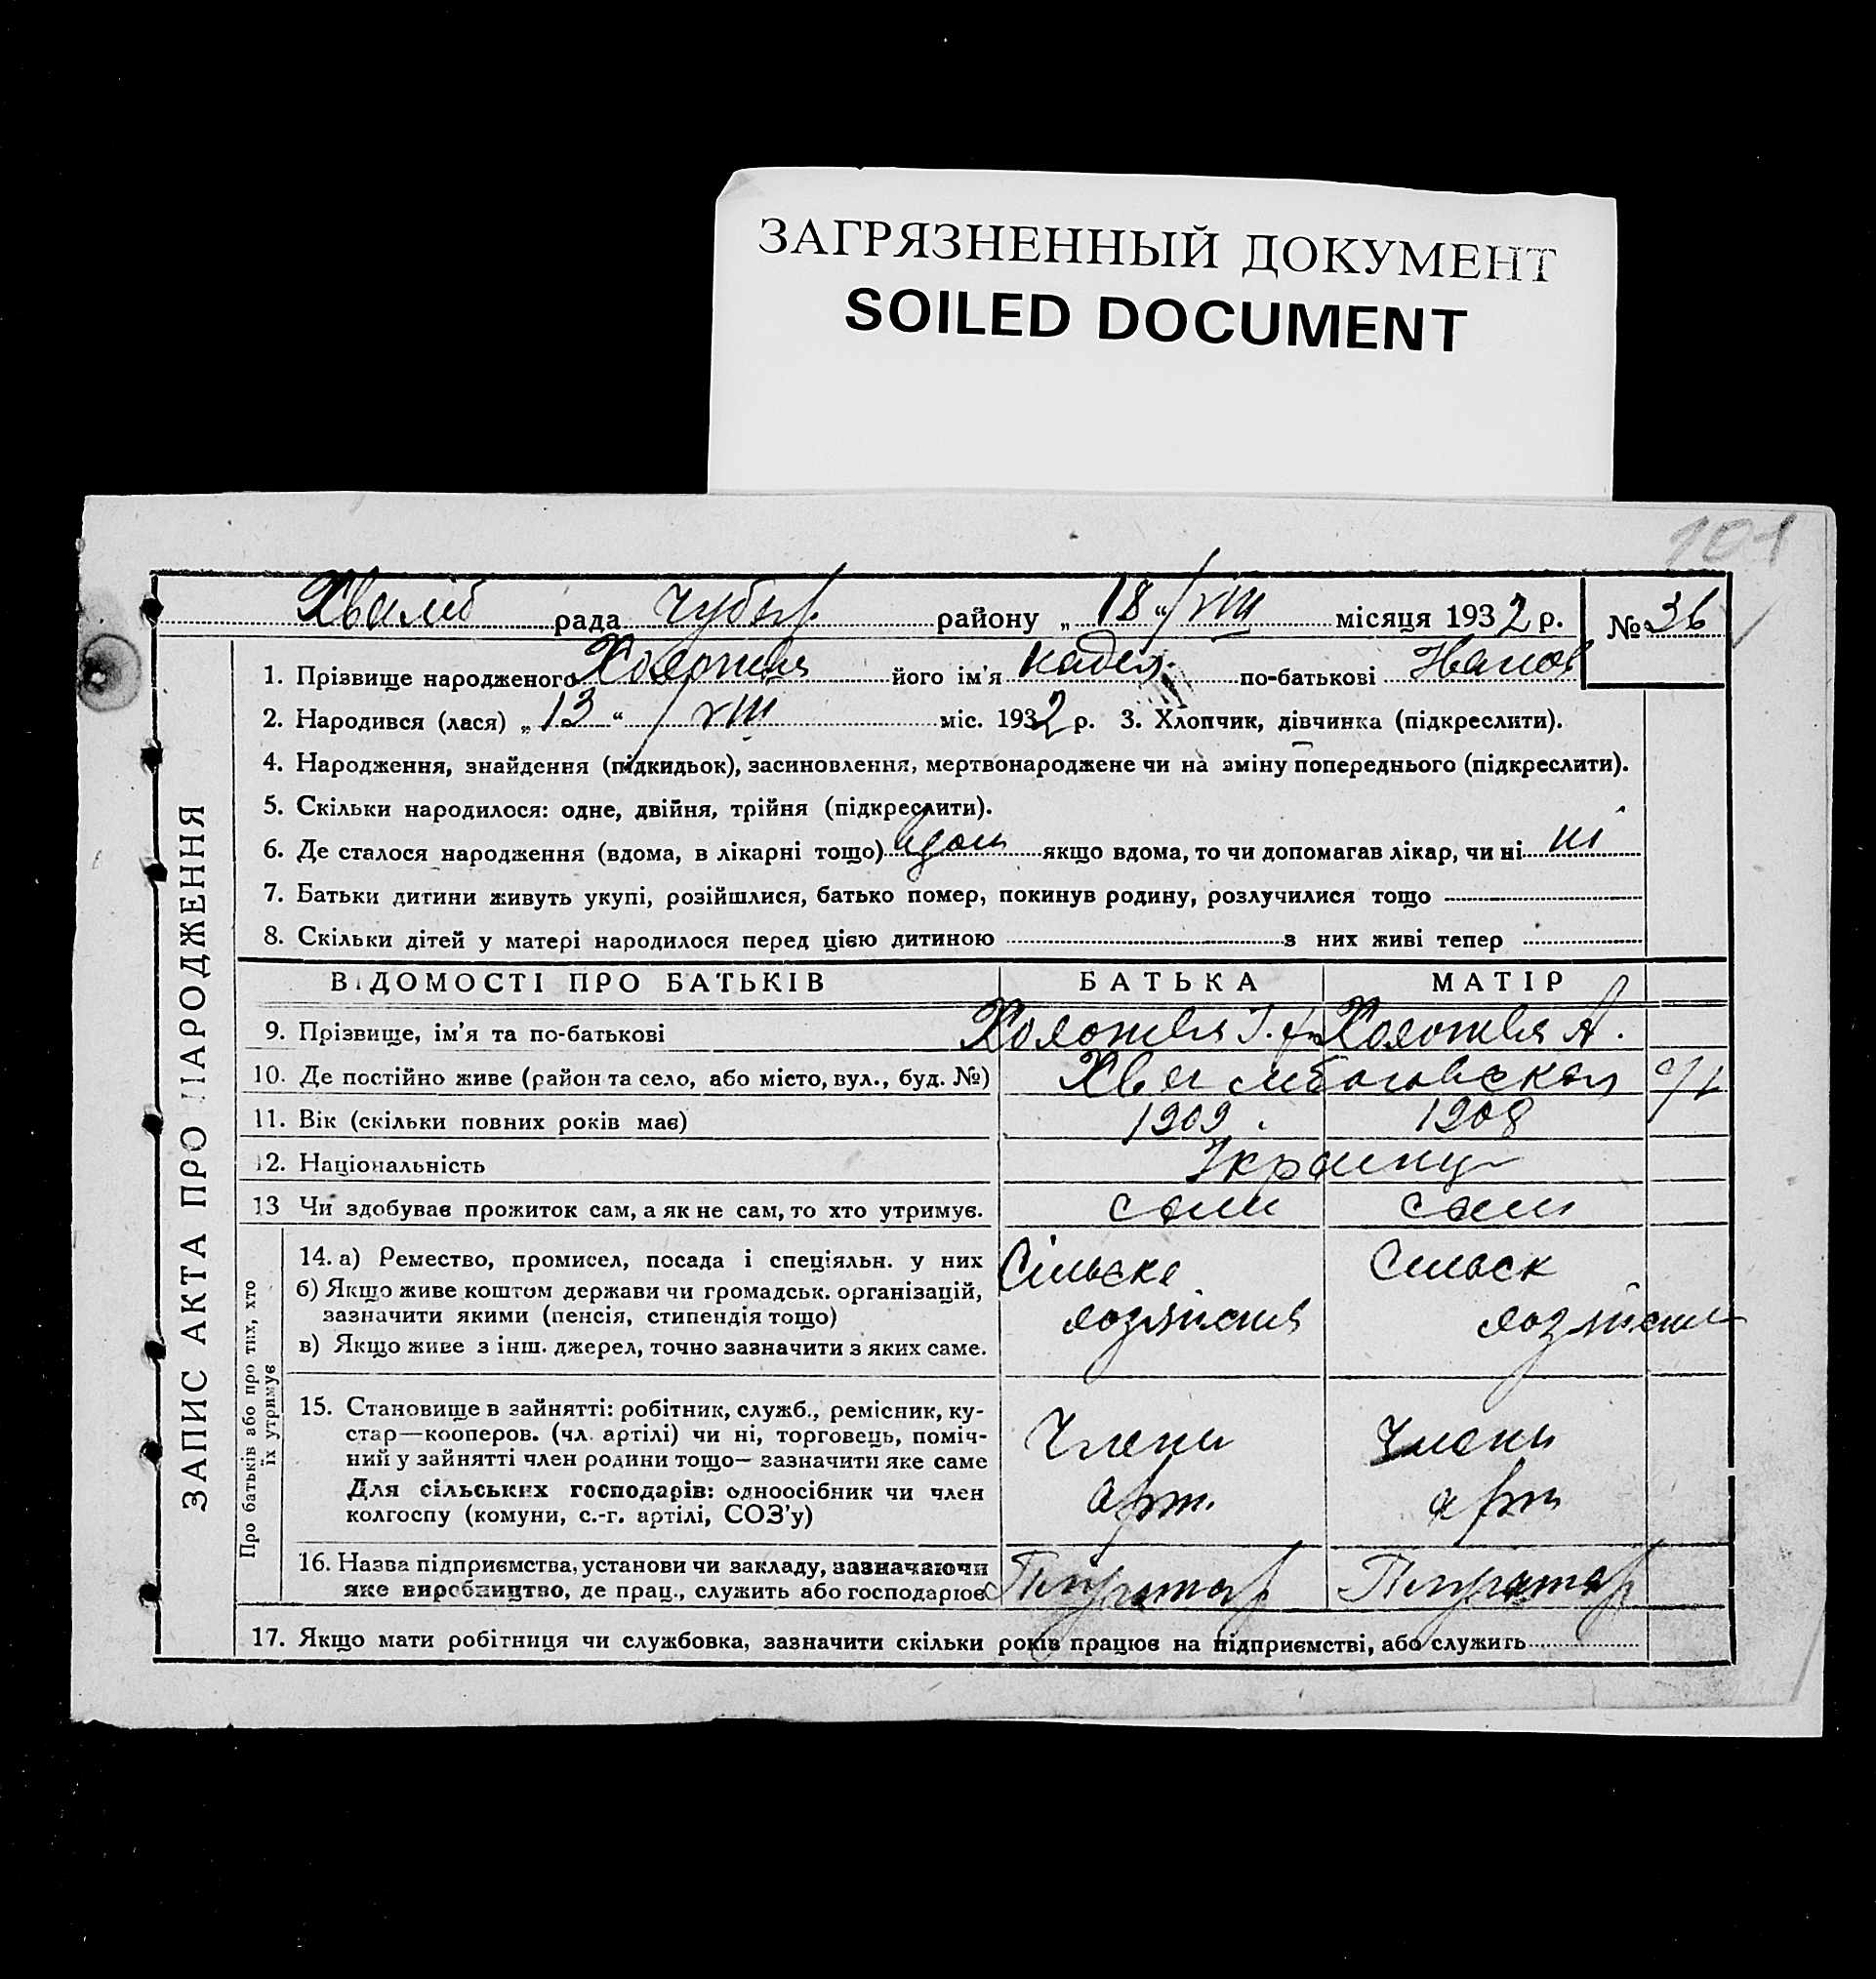 ЗАГРЯЗНЕННЫЙ ДОКУМЕНТ
SOILED DOCUMENT
101
рада Чубар. району „18“/VIII місяця 1932 р. № 36
1. Прізвище народженого його ім'я Надея по-батькові Иванов
2. Народився (лася) „13“ / VIII міс. 1932 р. 3. Хлопчик, дівчинка (підкреслити).
4. Народження, знайдення (підкидьок), засиновлення, мертвонароджене чи на зміну попереднього (підкреслити).
5. Скільки народилося: одне, двійня, трійня (підкреслити).
6. Де сталося народження (вдома, в лікарні тощо) вдом якщо вдома, то чи допомагав лікар, чи ні ні
7. Батьки дитини живуть укупі, розійшлися, батько помер, покинув родину, розлучилися тощо
8. Скільки дітей у матері народилося перед цією дитиною з них живі тепер
ВІДОМОСТІ ПРО БАТЬКІВ БАТЬКА МАТІР
9. Прізвище, ім'я та по-батькові
10. Де постійно живе (район та село, або місто, вул., буд. №)
11. Вік (скільки повних років має) 1909 1908
12. Національність Украинц
13 Чи здобуває прожиток сам, а як не сам, то хто утримує. сами сами
14. а) Ремество, промисел, посада і спеціяльн. у них Сільске Сільск
б) Якщо живе коштом держави чи громадськ. організацій,
зазначити якими (пенсія, стипендія тощо)
в) Якщо живе з інш. джерел, точно зазначити з яких саме.
15. Становище в зайнятті: робітник, служб., ремісник, ку-
стар—кооперов. (чл. артілі) чи ні, торговець, поміч- Члени Члени
ний у зайнятті член родини тощо— зазначити яке саме
Для сільських господарів: одноосібник чи член арт. арт
колгоспу (комуни, с.-г. артілі, СОЗ'у)
16. Назва підприємства, установи чи закладу, зазначаючи
яке виробництво, де прац., служить або господарює
17. Якщо мати робітниця чи службовка, зазначити скільки років працює на підприємстві, або служить
ЗАПИС АКТА ПРО НАРОДЖЕННЯ
Про батьків або про тих, хто
їх утримує